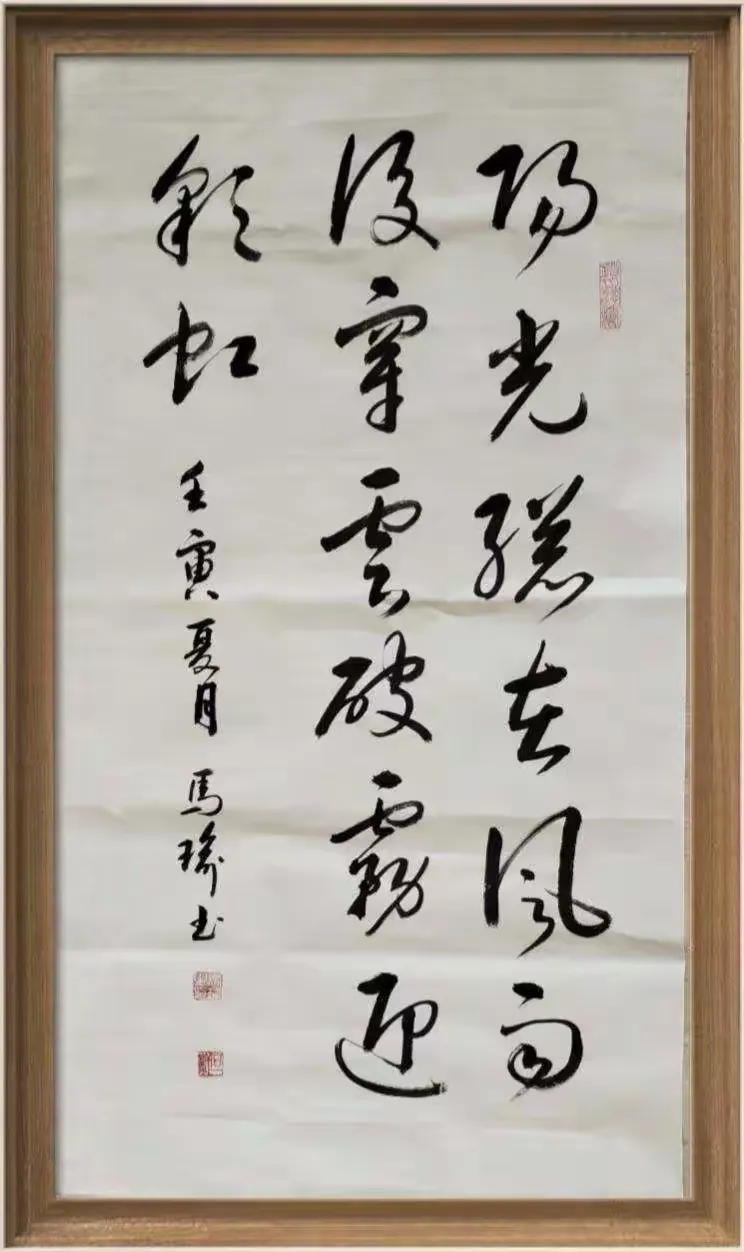 陽光總在風雨
後穿雲破霧迎
彩虹
壬寅夏月 馬瑜書